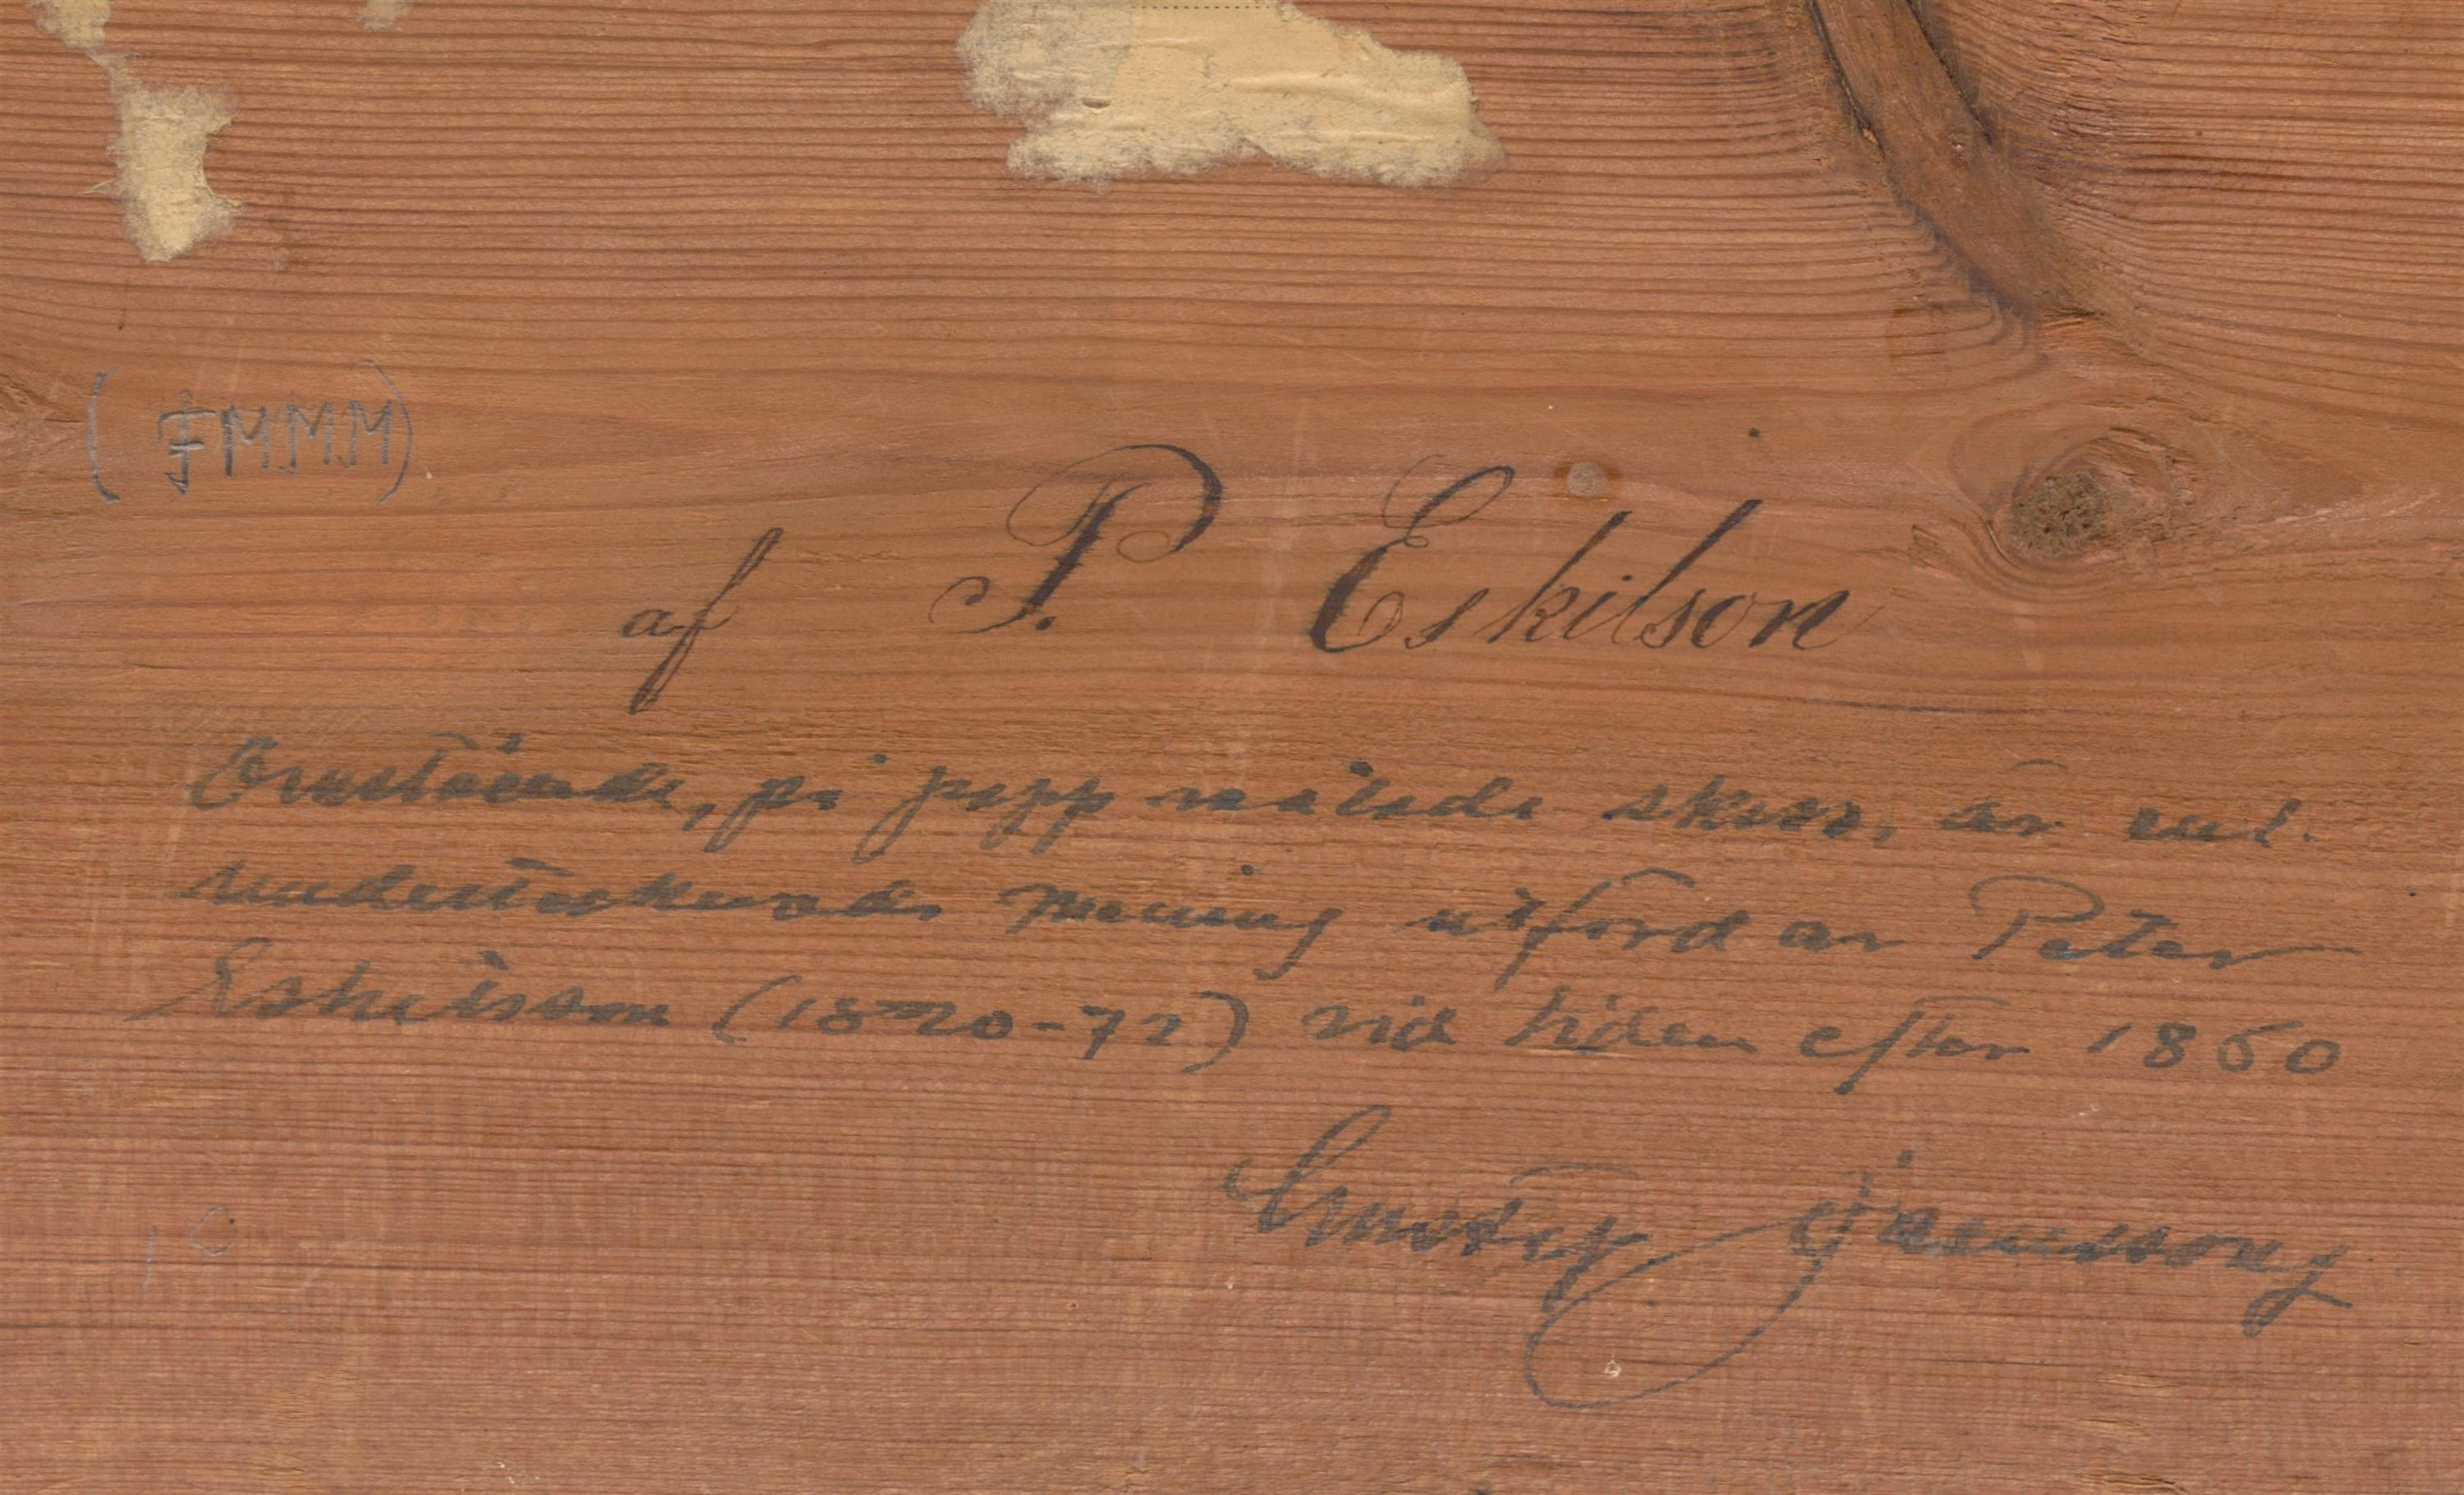 (FMMM)
af P. Eskilson
Omstående, på papp målade skiss, är enl.
undertecknads mening utförd av Peter
Eskilsson (1820-72) vid tiden efter 1860
Gustaf